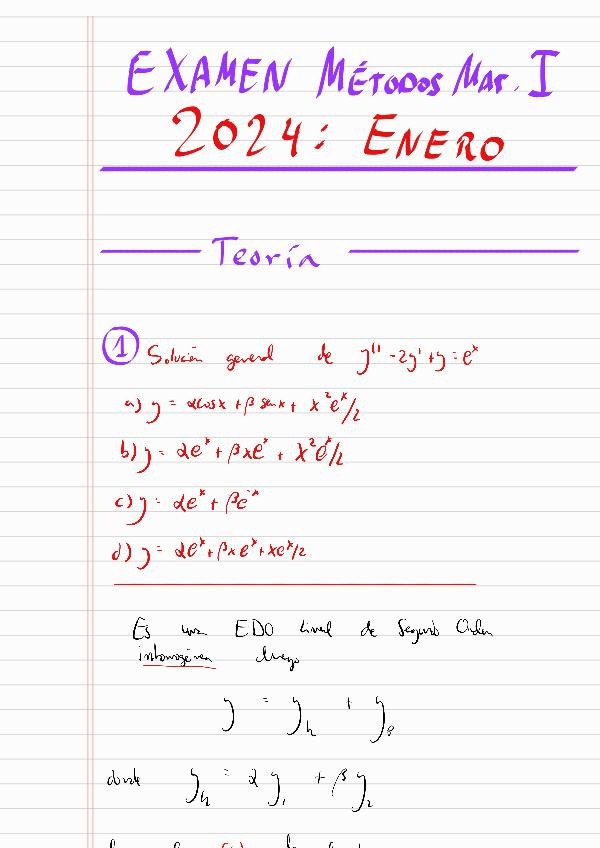 EXAMEN MÉTODOS MAT. I
2024: ENERO
Teoría
1 Solución general de y'' - 2y' + y = e^x
a) y = αcosx + β senx + x²e^x/2
b) y = αe^x + βxe^x + x²e^x/2
c) y = αe^x + βe^-x
d) y = αe^x + βxe^x + xe^x/2
Es una EDO lineal de Segundo Orden
inhomogénea luego
y = y_h + y_p
donde y_h = α y_1 + β y_2